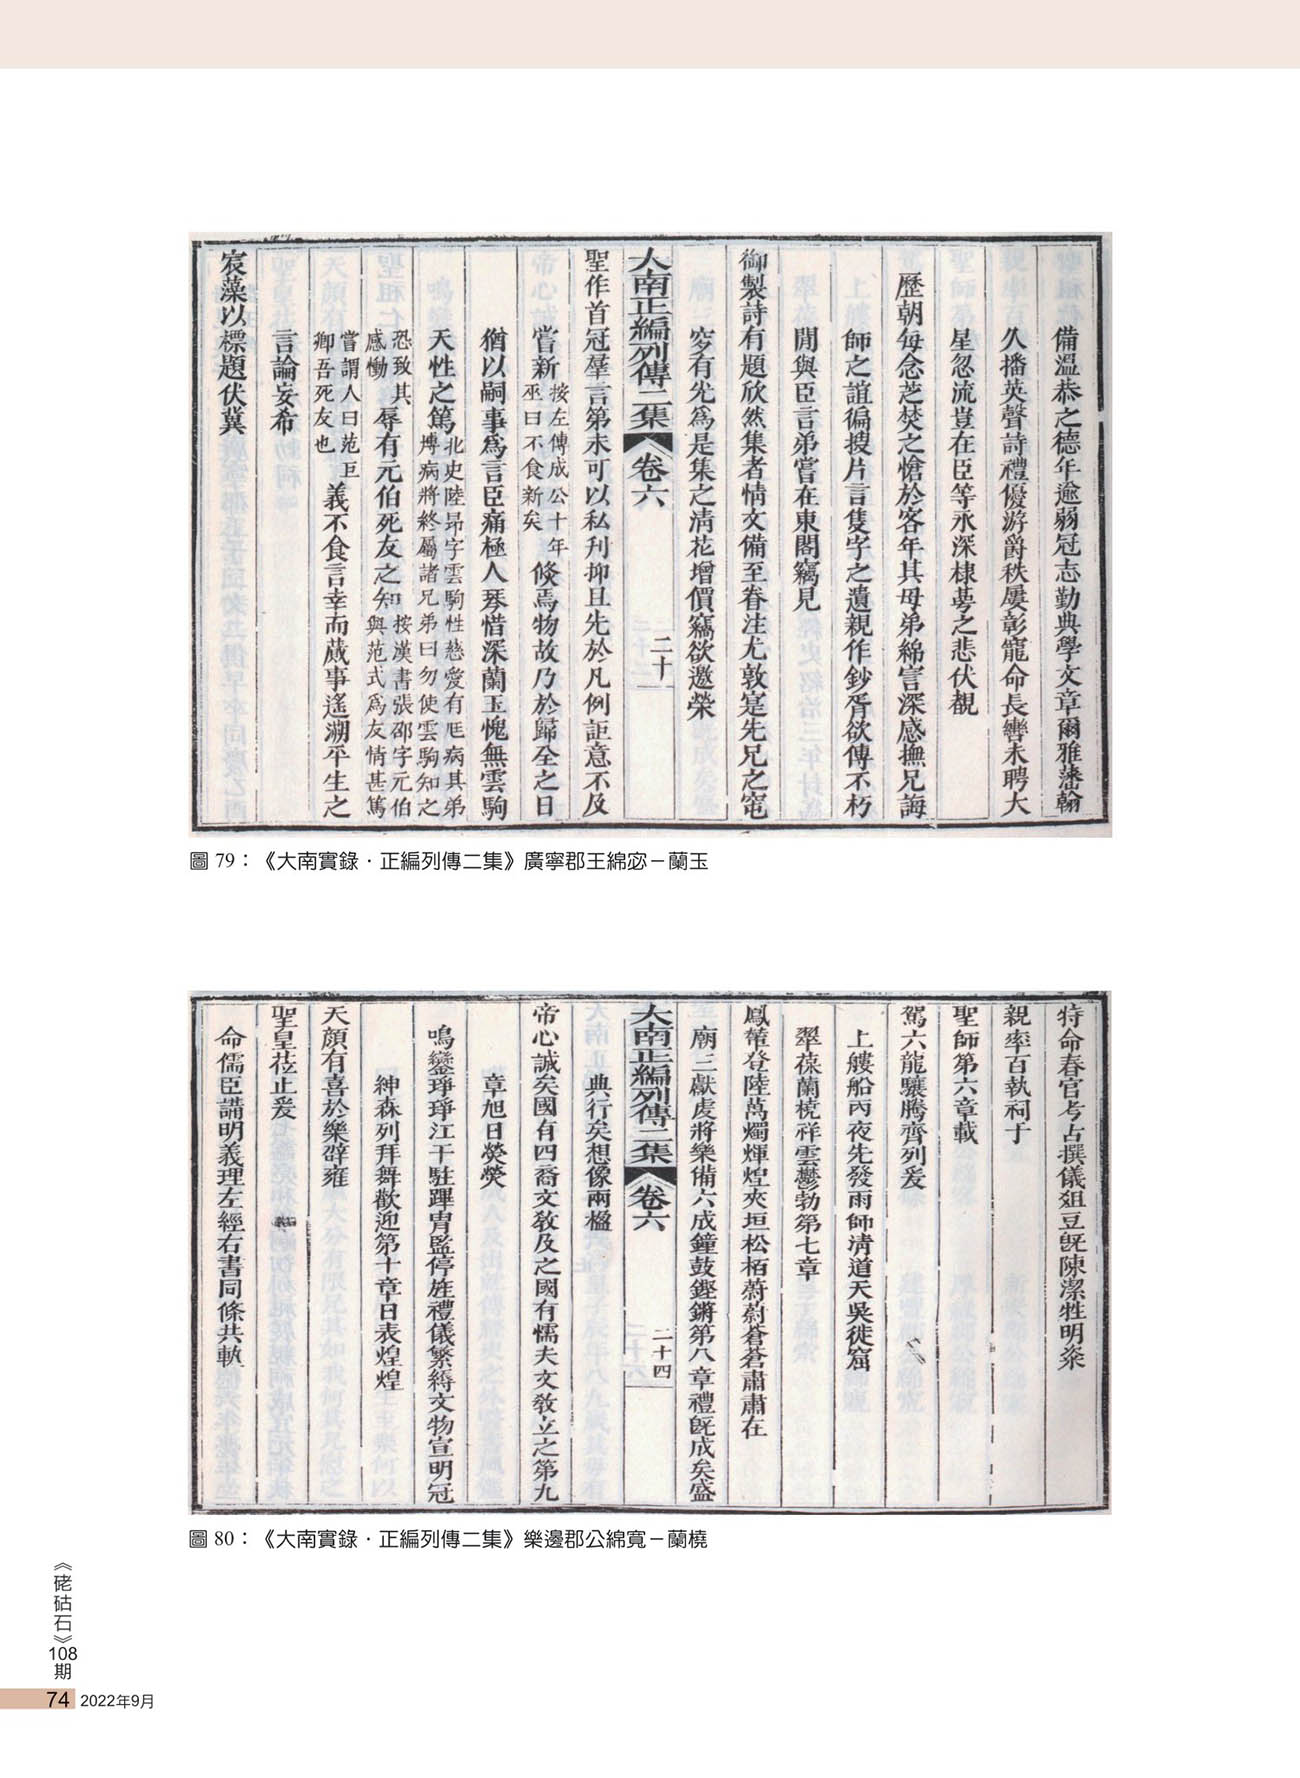 備溫恭之德年逾弱冠志勤典學文章爾雅藩翰
久播英聲詩禮優游爵秩屢彰寵命長轡未聘大
星忽流豈在臣等永深棣萼之悲伏覩
歷朝每念芝焚之愴於客年其母弟綿㝓深感撫兄誨
師之誼徧搜片言隻字之遺親作鈔胥欲傳不朽
閒與臣言弟嘗在東閣竊見
御製詩有題欣然集者情文備至眷注尤敦寔先兄之窀
穸有光爲是集之清花增價竊欲邀榮
大南正編列傳二集 卷六 二十一
聖作首冠羣言第未可以私刋抑且先於凡例詎意不及
嘗新 按左傳成公十年巫曰不食新矣 倐焉物故乃於歸全之日
猶以嗣事爲言臣痛極人琴惜深蘭玉愧無雲駒
天性之篤 北史陸昂字雲駒性慈愛有尫病其弟博病將終屬諸兄弟曰勿使雲駒知之
恐致其感慟 辱有元伯死友之知 按漢書張邵字元伯與范式爲友情甚篤
嘗謂人曰范巨卿吾死友也 義不食言幸而蕆事遙溯平生之
言論妄希
宸藻以標題伏冀
圖 79：《大南實錄．正編列傳二集》廣寧郡王綿宓－蘭玉
特命春官考占撰儀俎豆旣陳潔牲明粢
親率百執祠于
聖師第六章載
駕六龍驤騰齊列爰
上艛船丙夜先發雨師清道天吳徙窟
翠葆蘭橈祥雲鬱勃第七章
鳳輦登陸萬燭煇煌夾垣松栢蔚蔚蒼蒼肅肅在
廟三獻虔將樂備六成鐘鼓鏗鏘第八章禮旣成矣盛
典行矣想像兩楹
大南正編列傳二集 卷六 二十四
帝心誠矣國有四裔文敎及之國有懦夫文敎立之第九
章旭日熒熒
鳴鑾琤琤江干駐蹕胄監停旌禮儀繁縟文物宣明冠
紳森列拜舞歡迎第十章日表煌煌
天顏有喜於樂辟雍
聖皇莅止爰
命儒臣講明義理左經右書同條共軌
圖 80：《大南實錄．正編列傳二集》樂邊郡公綿寬－蘭橈
《硓𥑮石》108期
74 2022年9月